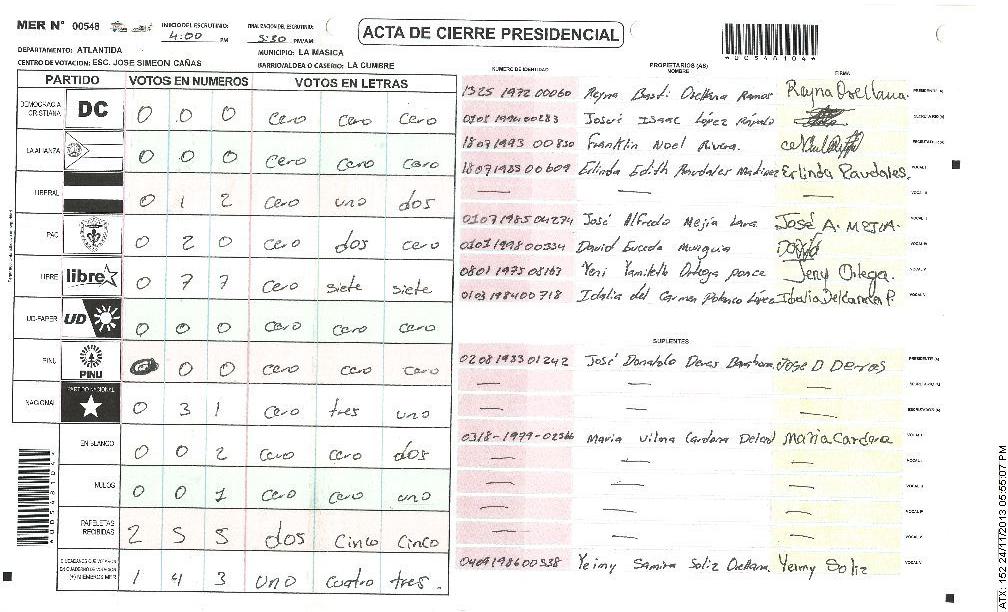 MER N° 00548 INICIO DEL ESCRUTINIO: 4:00 PM FINALIZACION DEL ESCRUTINIO: 5:30 PM/AM ACTA DE CIERRE PRESIDENCIAL
*00548104*
DEPARTAMENTO: ATLANTIDA MUNICIPIO: LA MASICA
CENTRO DE VOTACION: ESC. JOSE SIMEON CAÑAS BARRIO/ALDEA O CASERIO: LA CUMBRE
PARTIDO VOTOS EN NUMEROS VOTOS EN LETRAS
DEMOCRACIA CRISTIANA DC 0 0 0 cero cero cero
LA ALIANZA 0 0 0 cero cero cero
LIBERAL 0 1 2 cero uno dos
PAC 0 2 0 cero dos cero
LIBRE libre 0 7 7 cero siete siete
UD-FAPER UD 0 0 0 cero cero cero
PINU PINU 0 0 0 cero cero cero
NACIONAL PARTIDO NACIONAL 0 3 1 cero tres uno
EN BLANCO 0 0 2 cero cero dos
NULOS 0 0 1 cero cero uno
PAPELETAS RECIBIDAS 2 5 5 dos cinco cinco
CIUDADANOS QUE VOTARON EN CUADERNO DE VOTACION (+) MIEMBROS MER 1 4 3 uno cuatro tres.
*00548104*
NUMERO DE IDENTIDAD PROPIETARIOS (AS) NOMBRE FIRMA
1325 1972 00060 Reyna Orellana Ramos Reyna Orellana. PRESIDENTE (A)
Josué Isaac López SECRETARIO (A)
1807 1993 00830 Franklin Noel Rivera.
1807 1985 00609 Erlinda Edith Paudales Martinez Erlinda Paudales. VOCAL I
VOCAL II
0107 1985 04274 José Alfredo Mejía Lara José A. MEJIA.
0101 1998 00334 David Euceda Murguia
0801 1975 08163 Yeni Yamileth Ortega Ponce Jeny Ortega. VOCAL V
0103 1984 00718 Idalia del Carmen López Idalia Del Carmen P.
SUPLENTES
0208 1933 01242 José Donaldo Deras José D Deras PRESIDENTE (A)
SECRETARIO (A)
ESCRUTADOR (A)
0318-1979-02566 Maria Vilma Cardona Maria Cardona VOCAL I
VOCAL II
VOCAL III
VOCAL IV
VOCAL V
0409 1986 00538 Yeimy Samira Soliz Orellana. Yeimy Soliz
ATX: 152 24/11/2013 05:55:07 PM